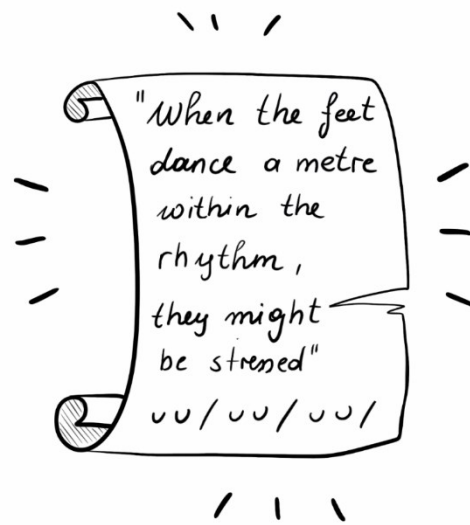 "When the feet
dance a metre
within the
rhythm,
they might
be stressed"
◡◡/◡◡/◡◡/